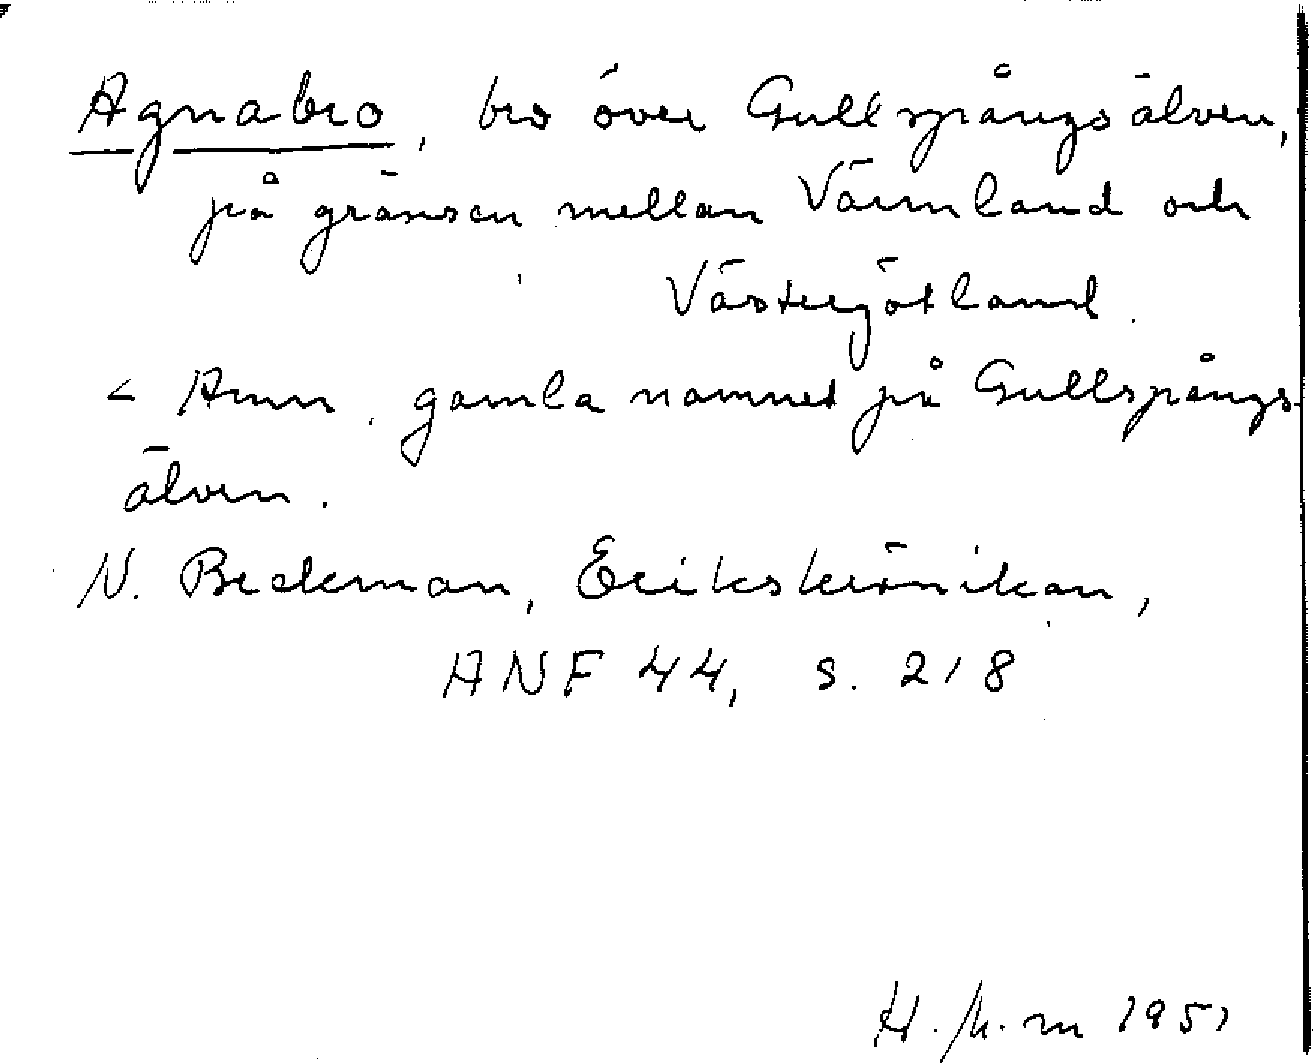 Agnabro, bro över Gullspångsälven,
på gränsen mellan Värmland och
Västergötland.
< Amn. gamla namnet på Gullspångs-
älven.
N. Beckman, Erikskrönikan,
ANF 44, s. 218
H. 1951